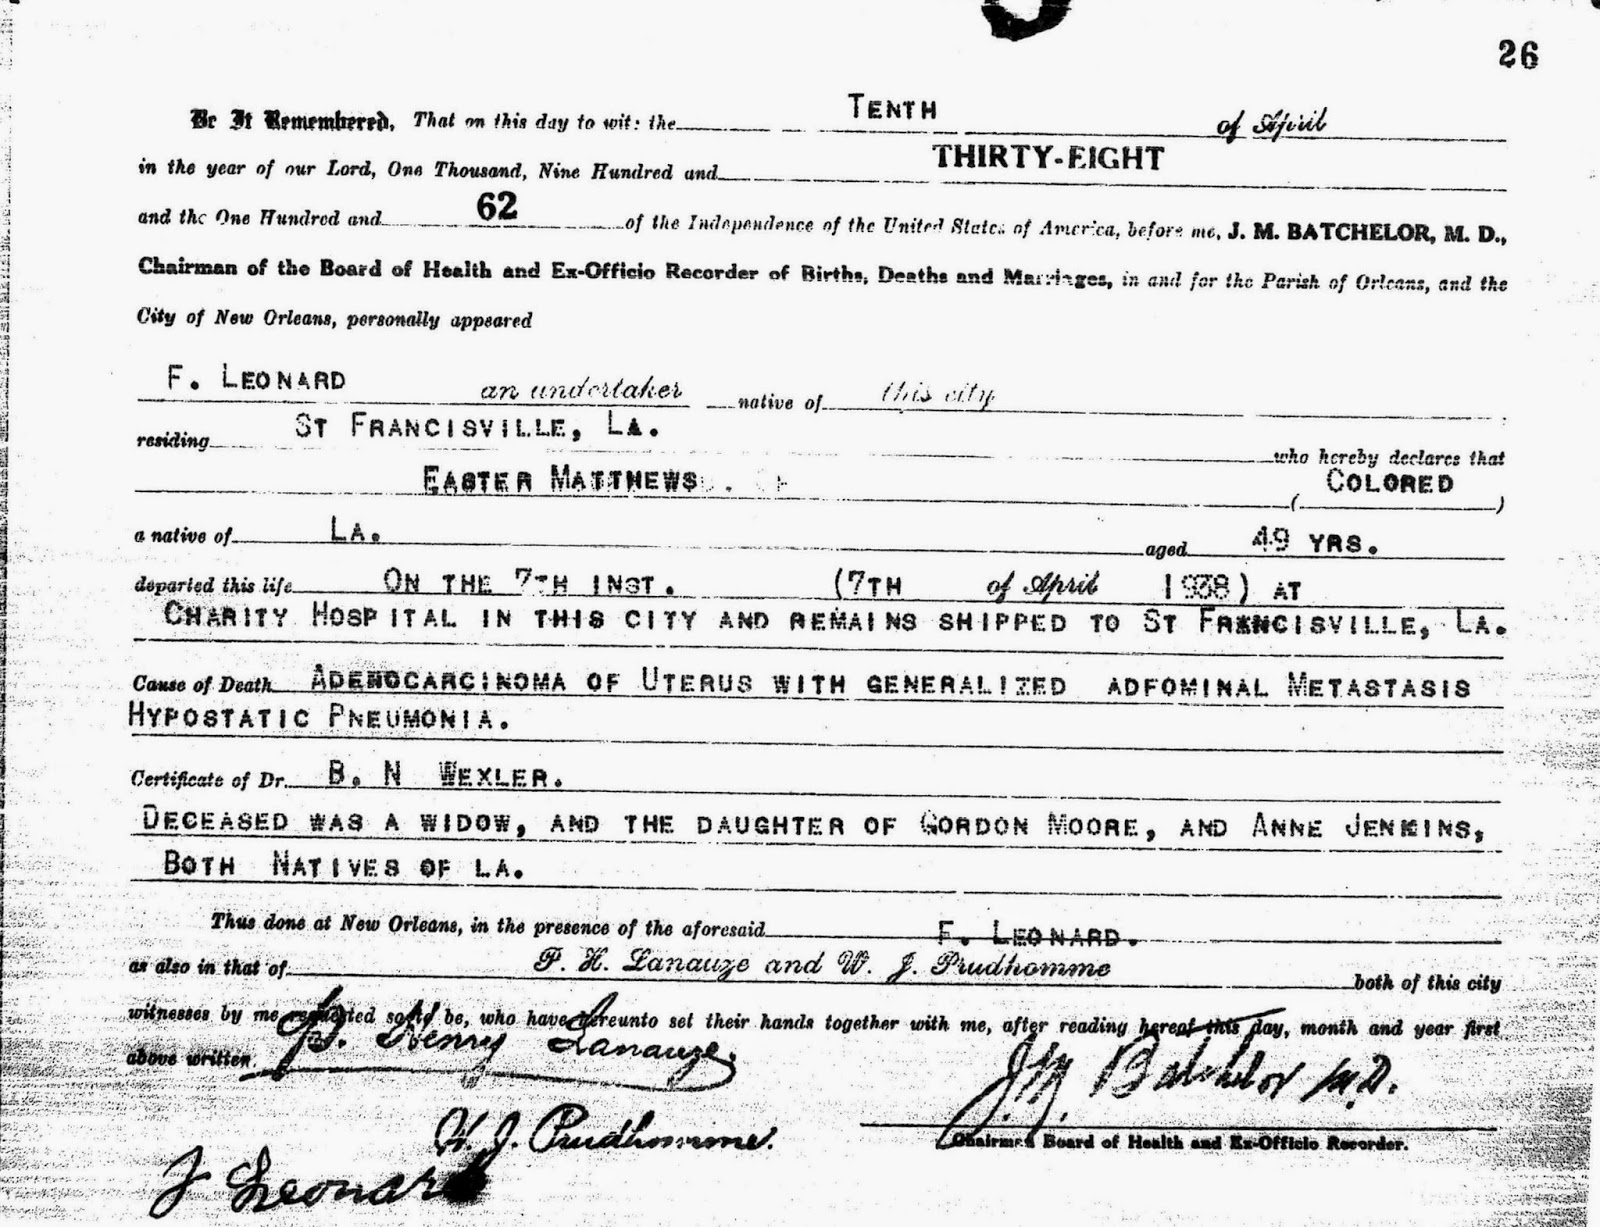 26
Be It Remembered, That on this day to wit: the TENTH of April
in the year of our Lord, One Thousand, Nine Hundred and THIRTY-EIGHT
and the One Hundred and 62 of the Independence of the United States of America, before me, J. M. BATCHELOR, M. D.,
Chairman of the Board of Health and Ex-Officio Recorder of Births, Deaths and Marriages, in and for the Parish of Orleans, and the
City of New Orleans, personally appeared
F. LEONARD an undertaker native of this city
residing ST FRANCISVILLE, LA. who hereby declares that
EASTER MATTHEWS. (COLORED)
a native of LA. aged 49 YRS.
departed this life ON THE 7TH INST. (7TH of April 1938) AT
CHARITY HOSPITAL IN THIS CITY AND REMAINS SHIPPED TO ST FRANCISVILLE, LA.
Cause of Death ADENOCARCINOMA OF UTERUS WITH GENERALIZED ADFOMINAL METASTASIS
HYPOSTATIC PNEUMONIA.
Certificate of Dr. B. N WEXLER.
DECEASED WAS A WIDOW, AND THE DAUGHTER OF GORDON MOORE, AND ANNE JENKINS,
BOTH NATIVES OF LA.
Thus done at New Orleans, in the presence of the aforesaid F. LEONARD.
as also in that of P. H. Lanauze and W. J. Prudhomme both of this city
witnesses by me requested so to be, who have hereunto set their hands together with me, after reading hereof this day, month and year first
above written. P. Henry Lanauze.
J. M. Batchelor M.D.
Chairman Board of Health and Ex-Officio Recorder.
W. J. Prudhomme.
F Leonard